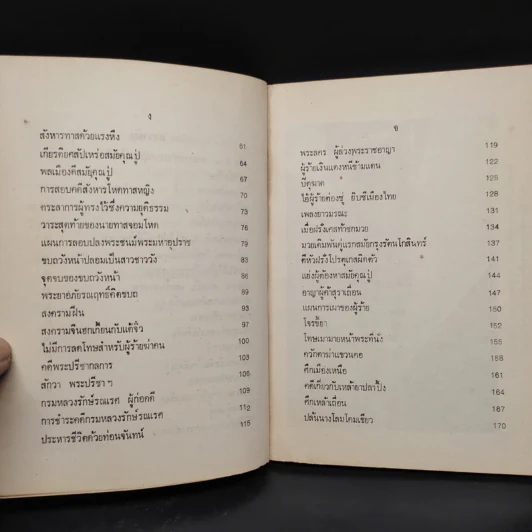 ง
สังหารทาสด้วยแรงหึง 61
เกียรติยศสัปเหร่อสมัยคุณปู่ 64
พลเมืองดีสมัยคุณปู่ 67
การสอบคดีสังหารโหดทาสหญิง 70
ตระลาการผู้ทรงไว้ซึ่งความยุติธรรม 73
วาระสุดท้ายของนายทาสจอมโหด 76
แผนการลอบปลงพระชนม์พระมหาอุปราช 79
ขบถวังหน้าปลอมเป็นสาวชาววัง 83
จุดจบของขบถวังหน้า 86
พระยาอภัยรณฤทธิ์คิดขบถ 89
สงครามฝิ่น 93
สงครามจีนฮกเกี้ยนกับแต้จิ๋ว 97
ไม่มีการลดโทษสำหรับผู้ร้ายฆ่าคน 100
คดีพระปรีชากลการ 103
สักวา พระปรีชา ฯ 106
กรมหลวงรักษ์รณเรศ ผู้ก่อคดี 109
การชำระคดีกรมหลวงรักษ์รณเรศ 112
ประหารชีวิตด้วยท่อนจันทน์ 115
จ
พระลคร ผู้ล่วงพระราชอาญา 119
ผู้ร้ายเงินแดงหนีข้ามแดน 122
ปิตุฆาต 125
ไอ้ผู้ร้ายต้องซู่ ยิบซีเมืองไทย 128
เพลงยาวมรณะ 131
เมื่อฝรั่งเตลท้าชกมวย 134
มวยเดิมพันคู่แรกสมัยกรุงรัตนโกสินทร์ 137
คีหัวฝรั่งโปรตุเกสผิดตัว 141
แย่งผู้ต้องหาสมัยคุณปู่ 144
อาญาผู้ค้าสุราเถื่อน 147
แผนการเผาของผู้ร้าย 150
โจรขี้ยา 152
โทษเมามายหน้าพระที่นั่ง 155
ควักตาฆ่าแขวนคอ 158
ศึกเมืองเหนือ 161
คดีเกี่ยวกับเหล้ายาปลาปิ้ง 164
ศึกเหล้าเถื่อน 167
ปล้นนางโลมโคมเขียว 170